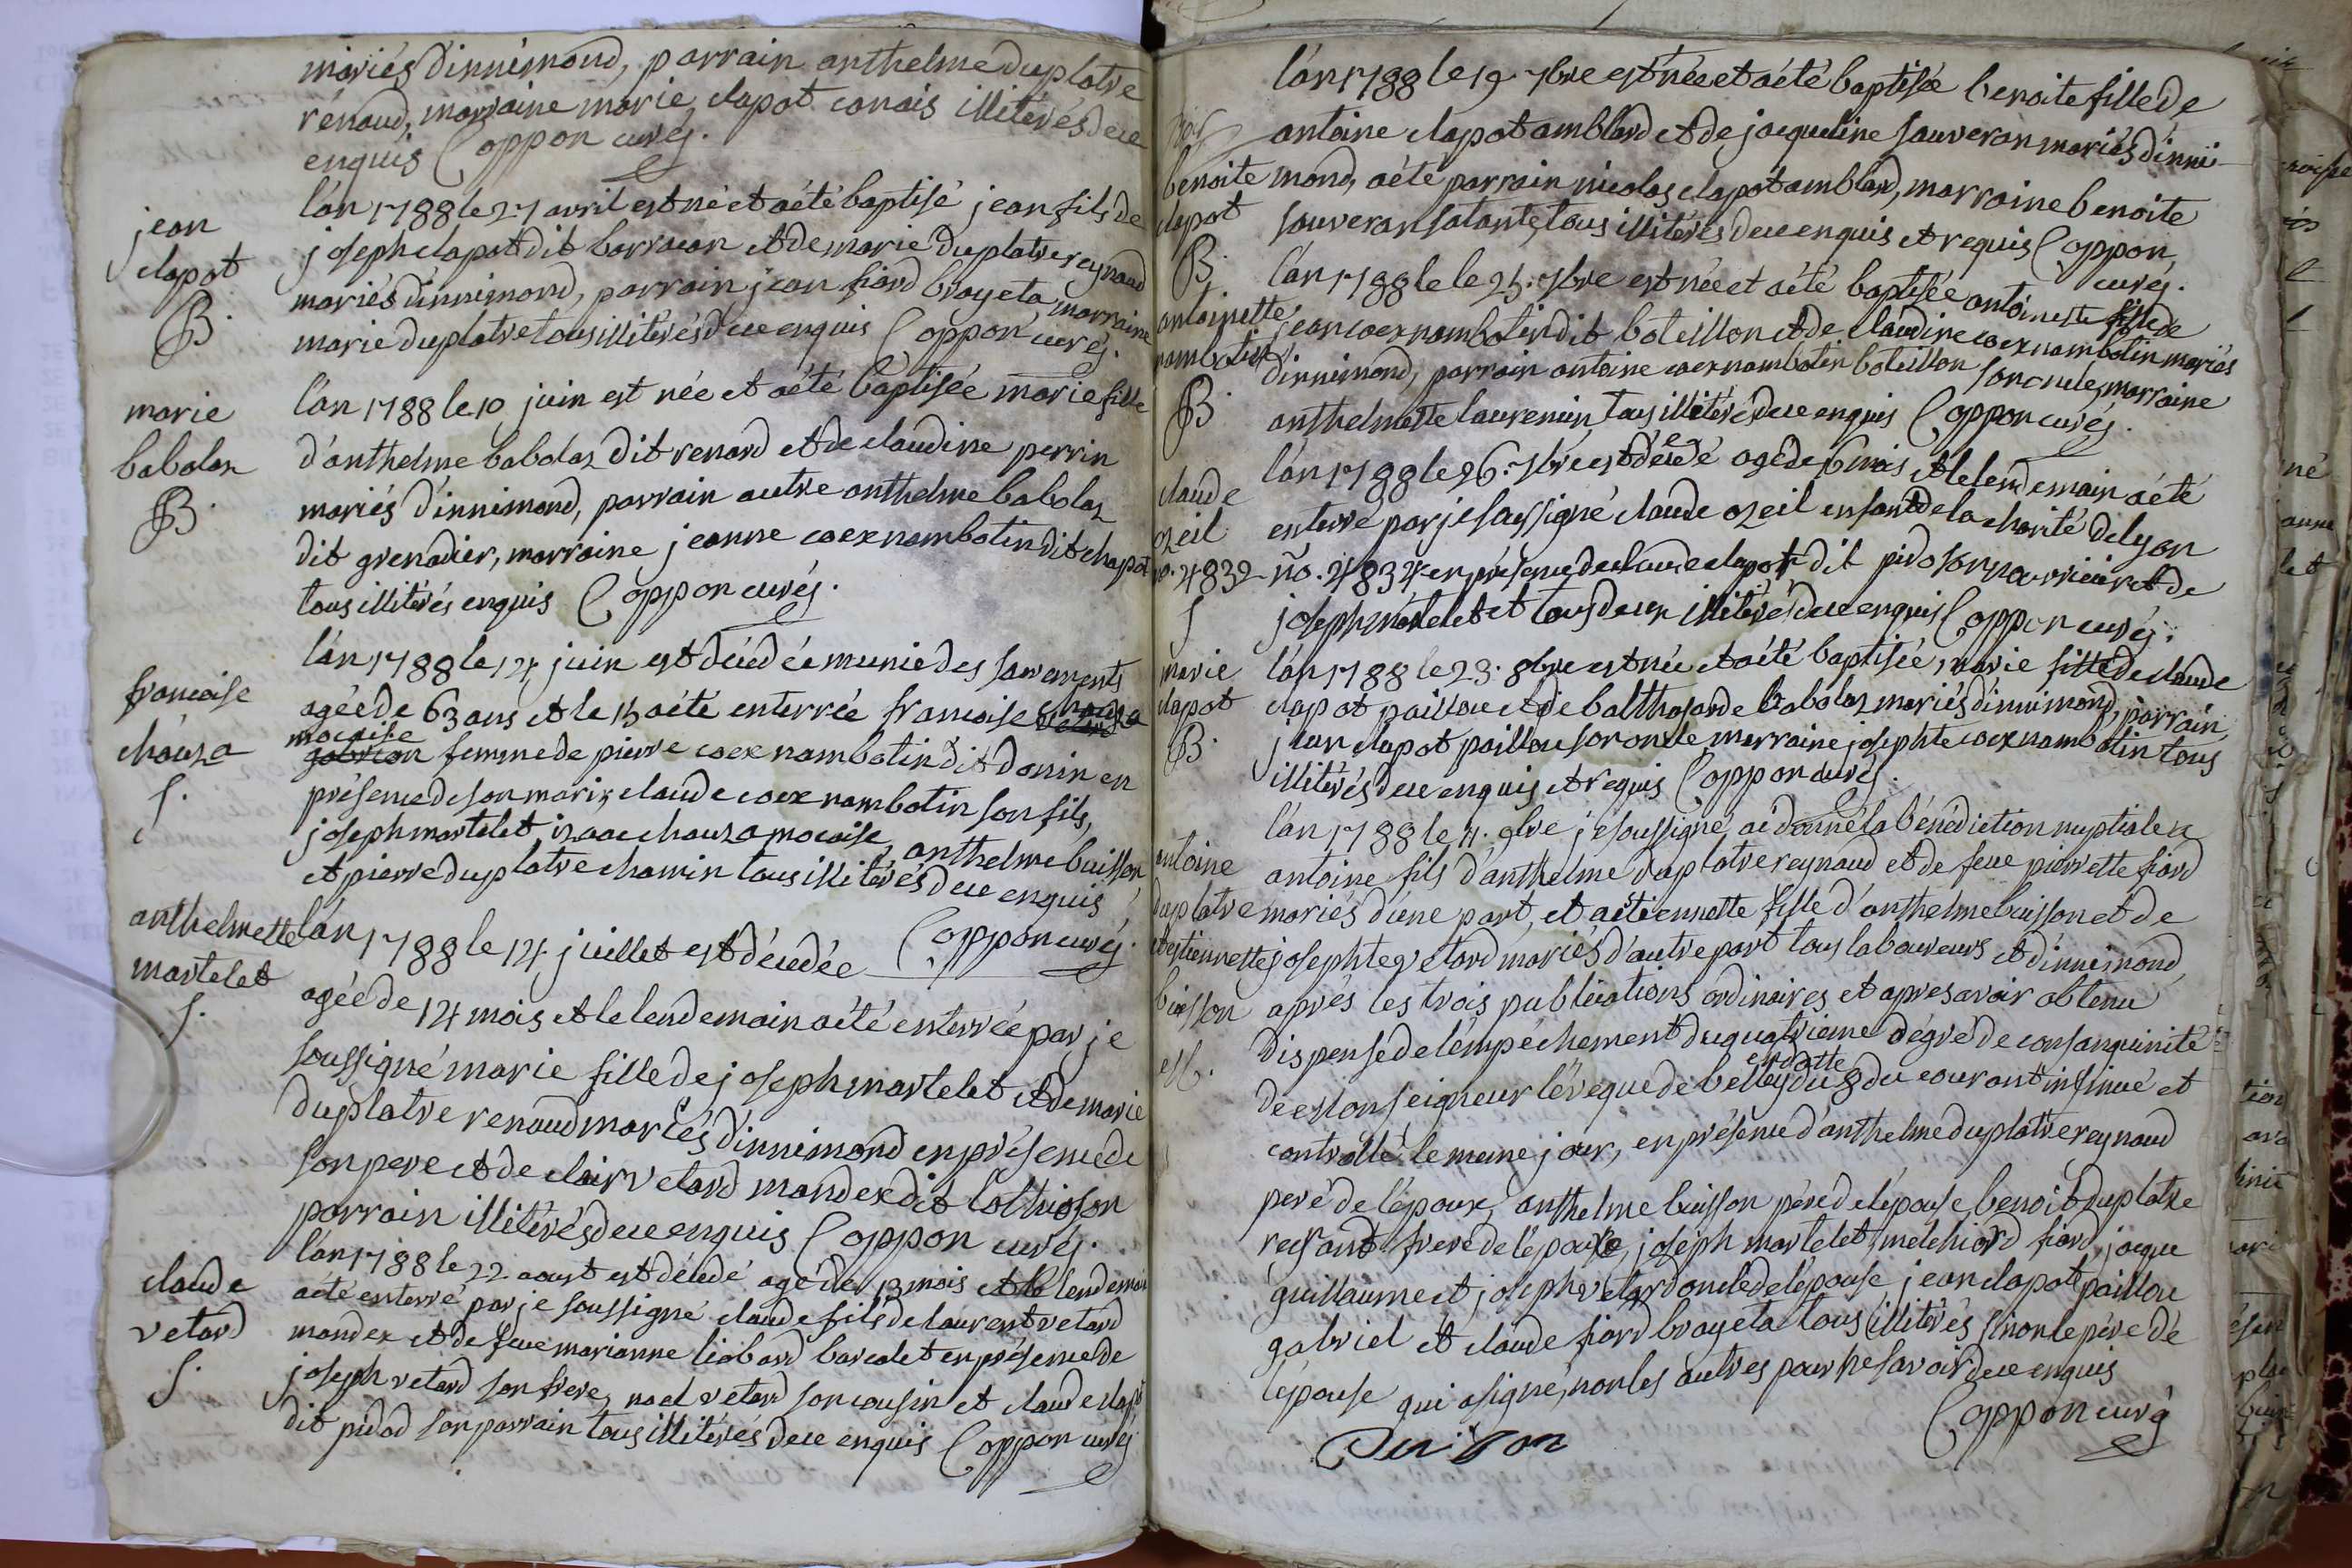 mariés d'innimond, parrain anthelme duplatre
rénaud, marraine marie clapot canais illitérés de ce
enquis Coppon curé.
jean
clapot
B.
l'án 1788 le 27 avril est né et a été baptisé jean fils de
joseph clapot dit barracan et de marie duplatre reynaud
mariés d'innimond, parrain jean fiard brageta marraine
marie duplatre tous illitérés de ce enquis Coppon curé.
marie
babolaz
B.
l'án 1788 le 10 juin est née et a été baptisée marie fille
d'anthelme babolaz dit renard et de claudine perrin
mariés d'innimond, parrain autre anthelme babolaz
dit grenadier, marraine jeanne caex nambotin dit chapot
tous illitérés enquis Coppon curé.
francoise
chauza
S.
l'án 1788 le 14 juin est décédée munie des sacrements
agée de 63 ans et le 15 a été enterrée francoise chauza
mocaise
gabrion femme de pierre caex nambotin dit donin en
présence de son mari, claude caex nambotin son fils,
joseph martelet izaac chauza mocaise, anthelme buisson
et pierre duplatre chamin tous illitérés de ce enquis
Coppon curé.
anthelmette
martelet
S.
l'án 1788 le 14 juillet est décédée
agée de 14 mois et le lendemain a été enterrée par je
soussigné marie fille de joseph martelet et de marie
duplatre renaud mariés d'innimond en présence de
son pere et de clair vetard mandex dit son
parrain illitérés de ce enquis Coppon curé.
claude
vetard
S.
l'án 1788 le 22 aoust est décédé agé de 13 mois et le lendemain
a été enterré par je soussigné claude fils de laurent vetard
mandex et de feue marianne liobard barcalet en présence de
joseph vetard son frere, noel vetard son cousin et claude clapot
dit pidod son parrain tous illitérés de ce enquis Coppon curé
benoite
clapot
B.
l'án 1788 le 19 7bre est née et a été baptisée benoite fille de
antoine clapot amblard et de jacqueline sauveran mariés d'inni-
mond, a été parrain nicolas clapot amblard, marraine benoite
sauveran sa tante, tous illitérés de ce enquis et requis Coppon
curé.
antoinette
nambotin
B.
l'án 1788 le le 25. 7bre est née et a été baptisée antoinette fille de
jean caex nambotin dit boteillon et de claudine caex nambotin mariés
d'innimond, parrain antoine caex nambotin boteillon son oncle, marraine
anthelmette laurencin, tous illitérés de ce enquis Coppon curé.
claude
ozeil
no. 4832
S
l'án 1788 le 26. 7bre est décédé agé de 6 mois et le lendemain a été
enterré par je soussigné claude ozeil enfant de la charité de lyon
no. 4832 en présence de claude clapot dit pidod son nourricier et de
joseph martelet et tous deux illitérés de ce enquis Coppon curé.
marie
clapot
B.
l'án 1788 le 23. 8bre est née et a été baptisée, marie fille de claude
clapot paillou et de balthasarde babolaz mariés d'innimond, parrain,
jean clapot paillou son oncle marraine josephte caex nambotin tous
illitérés de ce enquis et requis Coppon curé.
antoine
duplatre
et estiennette
buisson
l'án 1788 le 11. 9bre je soussigné, ai donné la bénédiction nuptiale a
antoine fils d'anthelme duplatre reynaud et de feue pierrette fiard
mariés d'une part, et a étiennette fille d'anthelme buisson et de
josephte vetard mariés d'autre part tous laboureurs et d'innimond
aprés les trois publications ordinaires et apres avoir obtenu
dispense de l'empéchement du quatrieme dégré de consanguinité
en datte
de monseigneur l'évêque de belley du 8 du courant insinué et
controllé le meme jour, en présence d'anthelme duplatre reynaud
peré de l'époux, anthelme buisson pére de l'épouse, benoit duplatre
reynaud frere de l'époux, joseph martelet, melchiord fiard, jacque
guillaume et joseph vetard oncle de l'épouse, jean clapot paillou
gabriel et claude fiard brageta tous illitérés sinon le pére de
l'épouse qui a signé, non les autres pour ne savoir de ce enquis
Coppon curé
Buisson